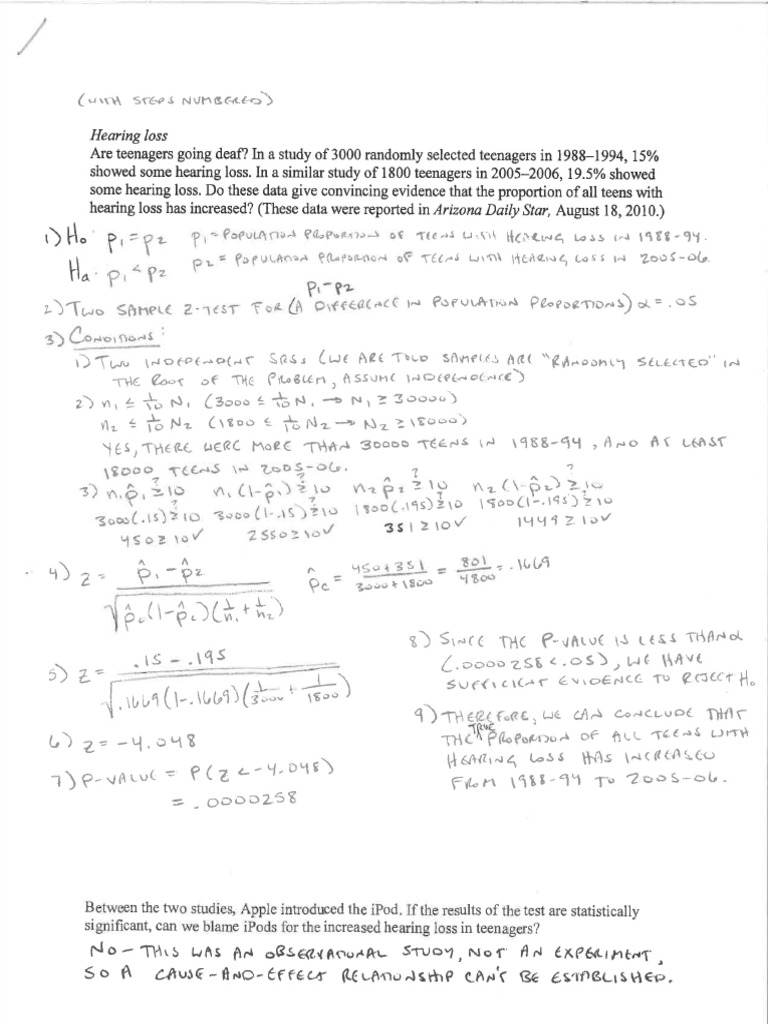 (WITH STEPS NUMBERED)
Hearing loss
Are teenagers going deaf? In a study of 3000 randomly selected teenagers in 1988–1994, 15%
showed some hearing loss. In a similar study of 1800 teenagers in 2005–2006, 19.5% showed
some hearing loss. Do these data give convincing evidence that the proportion of all teens with
hearing loss has increased? (These data were reported in Arizona Daily Star, August 18, 2010.)
1) H₀: p₁ = p₂ p₁ = POPULATION PROPORTION OF TEENS WITH HEARING LOSS IN 1988-94.
Ha: p₁ < p₂ p₂ = POPULATION PROPORTION OF TEENS WITH HEARING LOSS IN 2005-06.
p₁ - p₂
2) TWO SAMPLE Z-TEST FOR (A DIFFERENCE IN POPULATION PROPORTIONS) α = .05
3) CONDITIONS:
1) TWO INDEPENDENT SRSS (WE ARE TOLD SAMPLES ARE "RANDOMLY SELECTED" IN
THE ROOT OF THE PROBLEM, ASSUME INDEPENDENCE)
2) n₁ ≤ 1/10 N₁ (3000 ≤ 1/10 N₁ → N₁ ≥ 30000)
n₂ ≤ 1/10 N₂ (1800 ≤ 1/10 N₂ → N₂ ≥ 18000)
YES, THERE WERE MORE THAN 30000 TEENS IN 1988-94, AND AT LEAST
18000 TEENS IN 2005-06.
3) n₁p̂₁ ≥? 10 n₁(1-p̂₁) ≥? 10 n₂p̂₂ ≥? 10 n₂(1-p̂₂) ≥? 10
3000(.15) ≥? 10 3000(1-.15) ≥? 10 1800(.195) ≥? 10 1800(1-.195) ≥? 10
450 ≥ 10 ✓ 2550 ≥ 10 ✓ 351 ≥ 10 ✓ 1449 ≥ 10 ✓
4) z = (p̂₁ - p̂₂) / √(p̂c(1-p̂c)(1/n₁ + 1/n₂)) p̂c = (450+351)/(3000+1800) = 801/4800 = .1669
5) z = (.15 - .195) / √(.1669(1-.1669)(1/3000 + 1/1800))
6) z = -4.048
7) P-VALUE = P(Z < -4.048)
= .0000258
8) SINCE THE P-VALUE IS LESS THAN α
(.0000258 < .05), WE HAVE
SUFFICIENT EVIDENCE TO REJECT H₀.
9) THEREFORE, WE CAN CONCLUDE THAT
THE TRUE PROPORTION OF ALL TEENS WITH
HEARING LOSS HAS INCREASED
FROM 1988-94 TO 2005-06.
Between the two studies, Apple introduced the iPod. If the results of the test are statistically
significant, can we blame iPods for the increased hearing loss in teenagers?
NO - THIS WAS AN OBSERVATIONAL STUDY, NOT AN EXPERIMENT,
SO A CAUSE-AND-EFFECT RELATIONSHIP CAN'T BE ESTABLISHED.